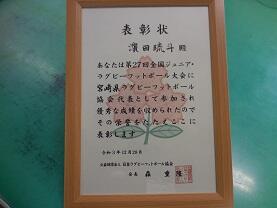 表彰状
濵田琉斗 殿
あなたは第27回全国ジュニア・
ラグビーフットボール大会に
宮崎県ラグビーフットボール
協会代表として参加され
優秀な成績を収められたので
その栄誉をたたえここに
表彰します
令和3年12月28日
公益財団法人 日本ラグビーフットボール協会
会長 森 重隆